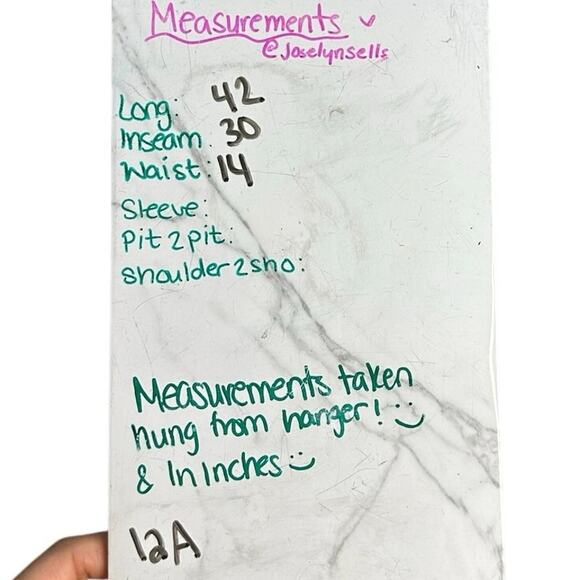 Measurements
@Joselynsells
Long: 42
Inseam: 30
Waist: 14
Sleeve:
Pit 2 pit:
Shoulder 2 sho:
Measurements taken
hung from hanger! :)
& In Inches :)
12A